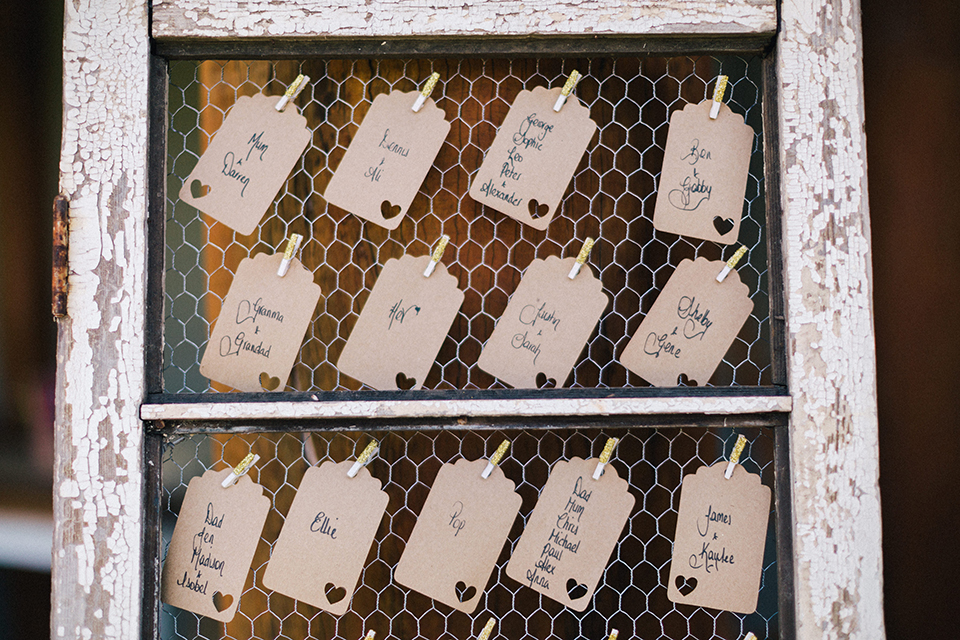 Mum
&
Darren
Dennis
&
Ali
George
Sophie
Leo
Peter
&
Alexander
Ben
&
Gabby
Granma
&
Grandad
Justin
&
Sarah
Shelby
&
Gene
Dad
Jen
Madison
&
Isobel
Ellie
Pop
Dad
Mum
Chris
Michael
Paul
Alex
&
Anna
James
&
Kaylee